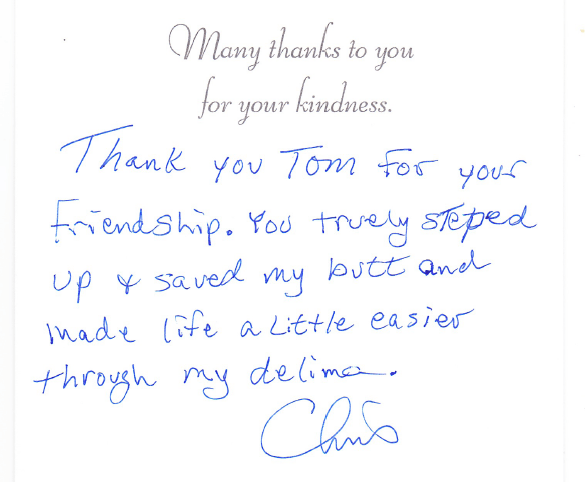 Many thanks to you
for your kindness.
Thank you Tom for your
friendship. You truely steped
up & saved my butt and
made life a little easier
through my delima.
Chris